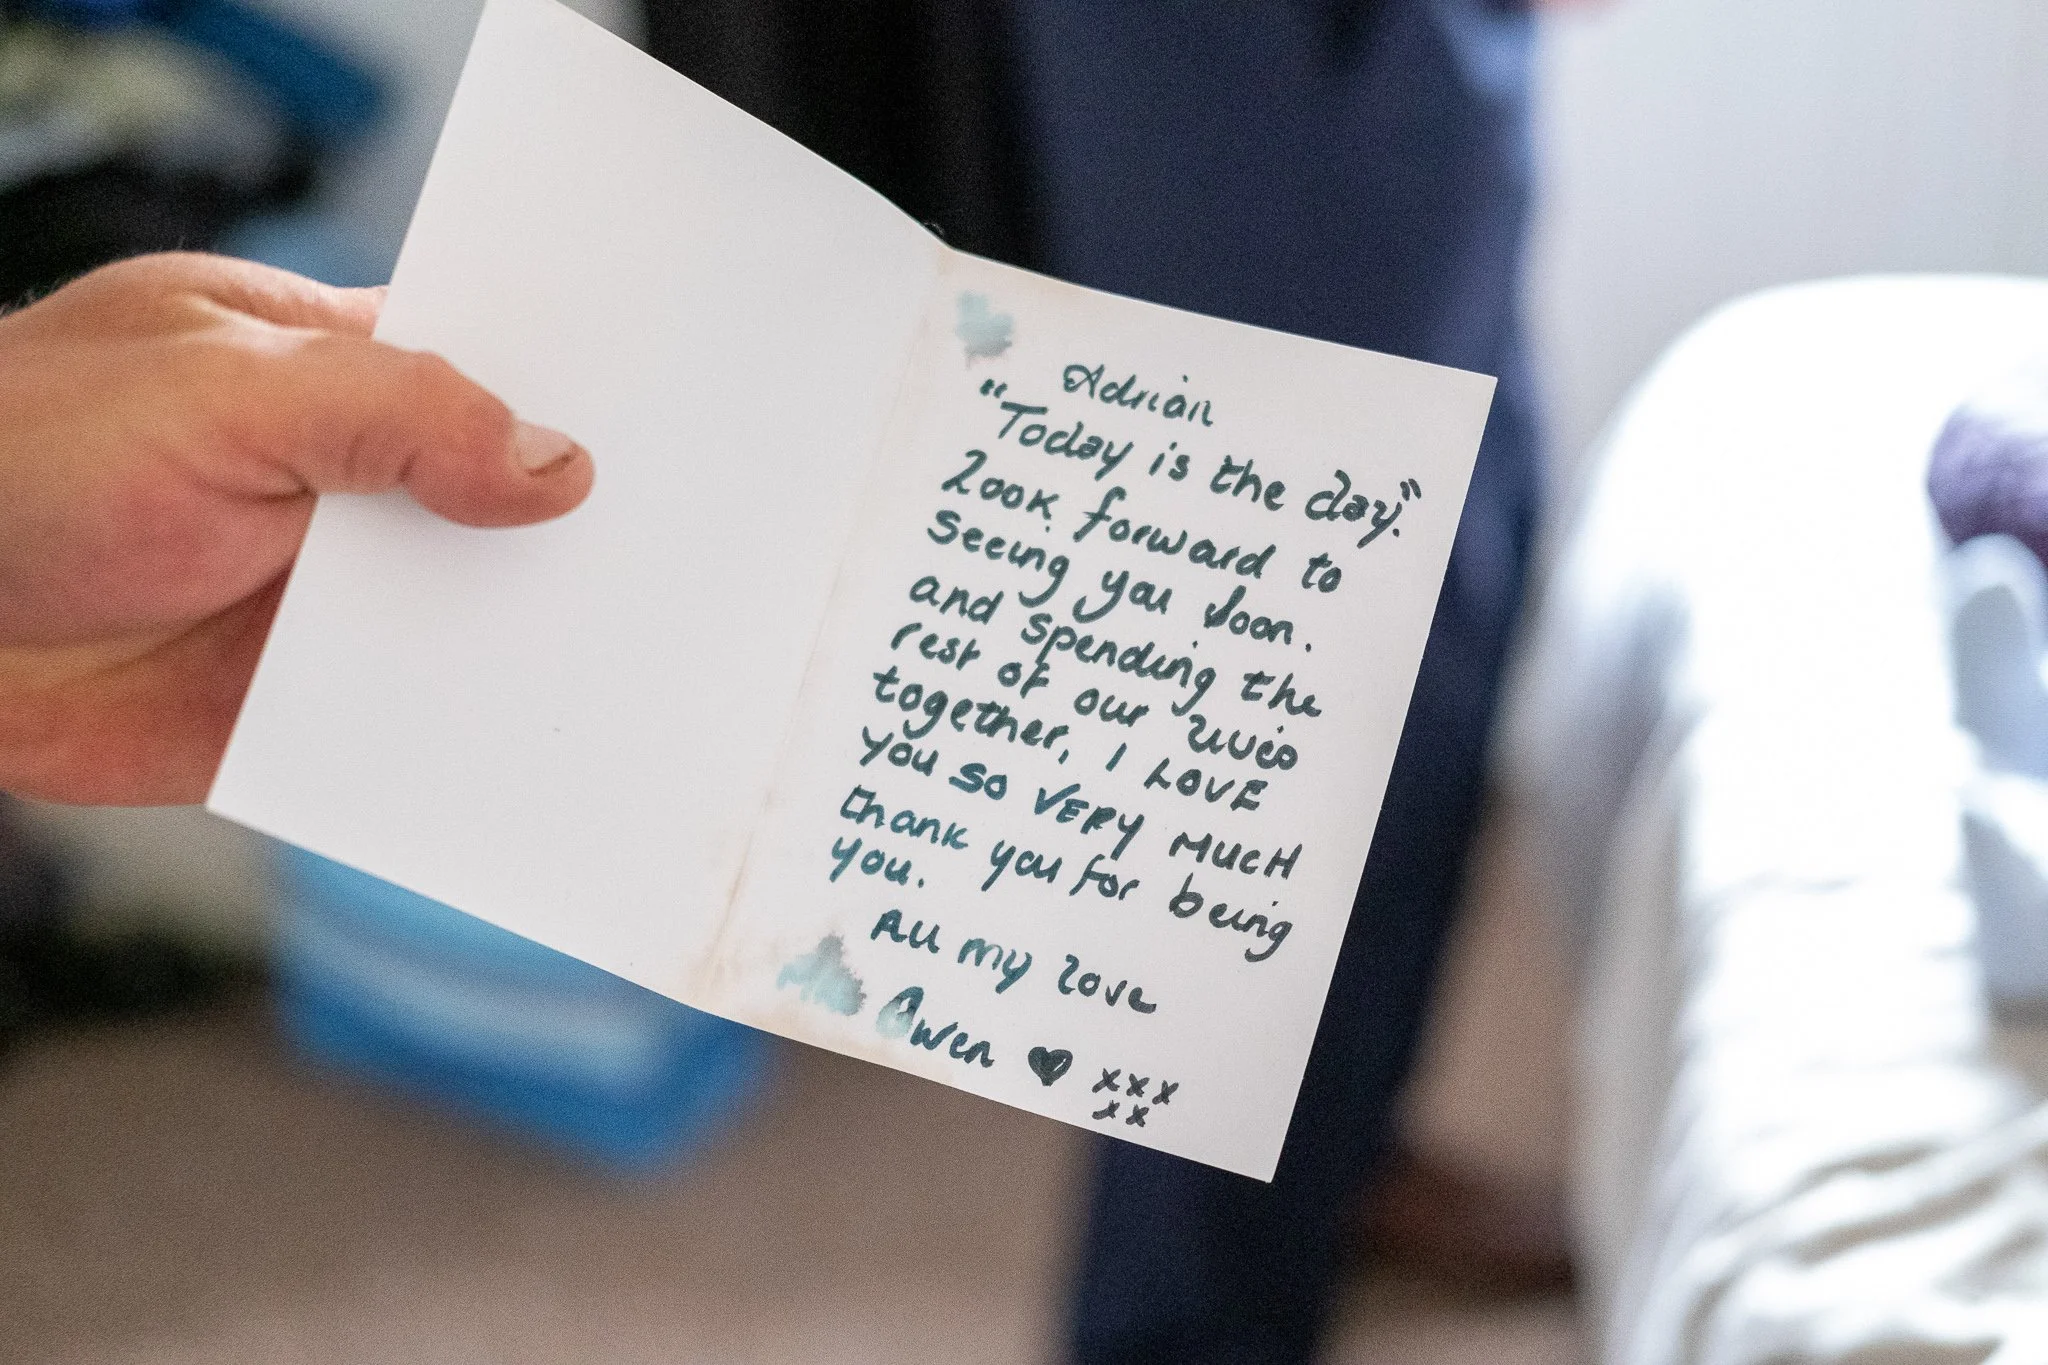 Adrian
"Today is the day."
Look forward to
seeing you soon.
and spending the
rest of our lives
together, I LOVE
you so VERY MUCH
thank you for being
you.
All my love
Owen ♥ xxx
xx